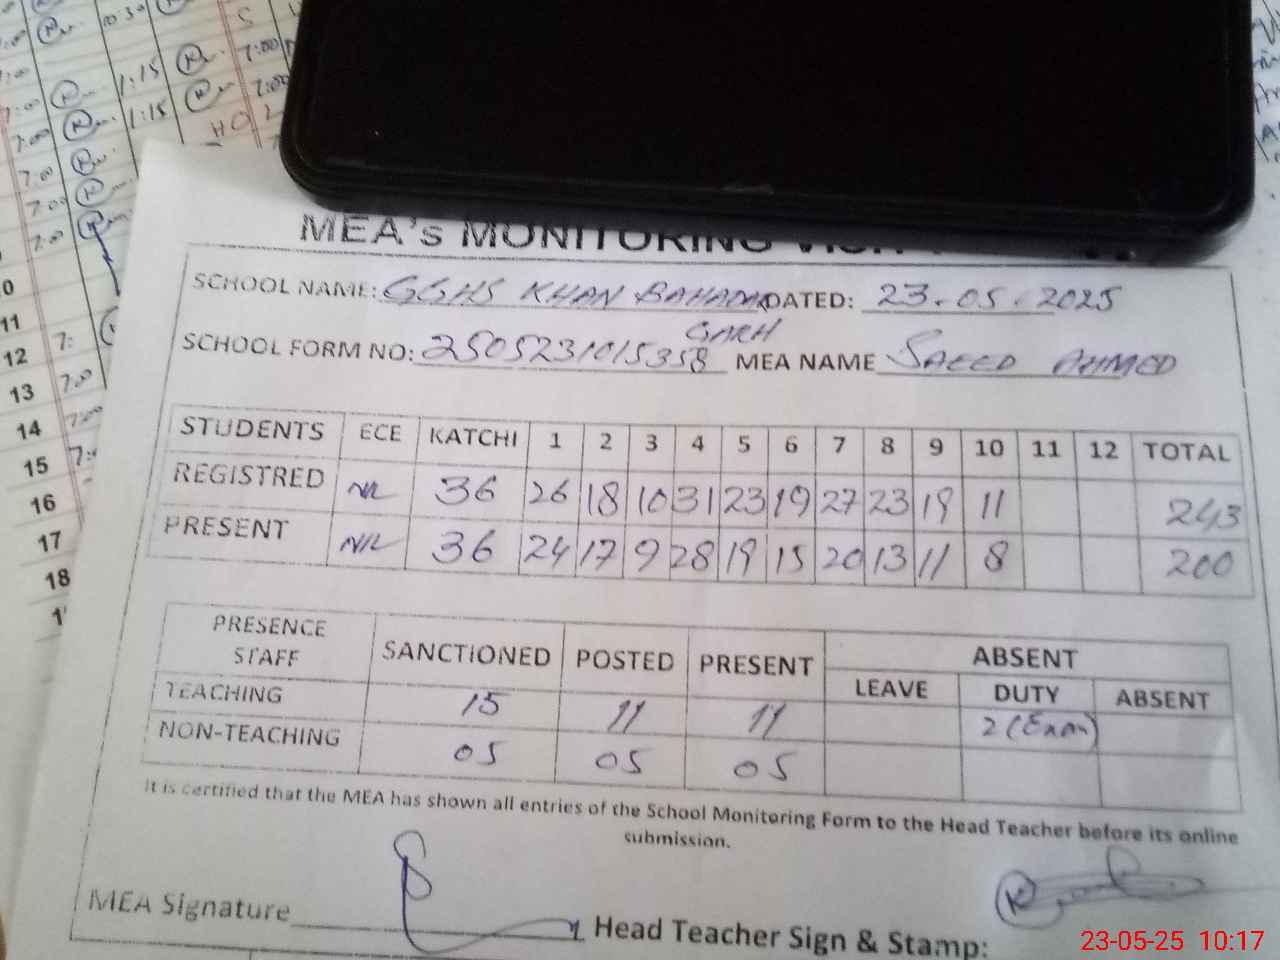 MEA's MONITORING
SCHOOL NAME: GGHS KHAN BAHADAR DATED: 23.05.2025
GARH
SCHOOL FORM NO: 2505231015358 MEA NAME SAEED AHMED
STUDENTS ECE KATCHI 1 2 3 4 5 6 7 8 9 10 11 12 TOTAL
REGISTRED NIL 36 26 18 10 31 23 19 27 23 19 11 243
PRESENT NIL 36 24 17 9 28 19 15 20 13 11 8 200
PRESENCE STAFF SANCTIONED POSTED PRESENT ABSENT
LEAVE DUTY ABSENT
TEACHING 15 11 11 2 (Exam)
NON-TEACHING 05 05 05
It is certified that the MEA has shown all entries of the School Monitoring Form to the Head Teacher before its online
submission.
MEA Signature Head Teacher Sign & Stamp:
23-05-25 10:17
11
12
13
14
15
16
17
18